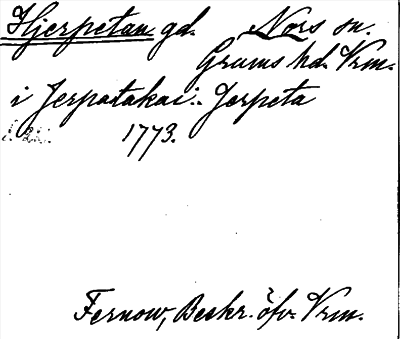 Hjerpetan gd. Nors sn.
Grums hd. Vrm.
i Jerpatakai: Jerpeta
1773.
Fernow, Beskr. öfv. Vrm.